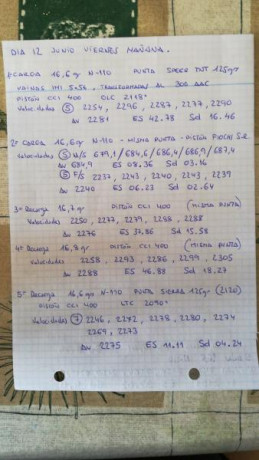 DIA 12 JUNIO VIERNES MAÑANA.
RECARGA 16,6 gr N-110 PUNTA SPEER TNT 125gr
VAINAS 5,56 TRANSFORMADAS AL 300 AAC
PISTÓN CCI 400 OLC 2.118"
Velocidades (5) 2254, 2296, 2283, 2277, 2290
AV 2281 ES 42.78 Sd 16.46
2ª CARGA 16,6 gr N-110 - MISMA PUNTA - PISTÓN
Velocidades (5) M/S 679,1 / 684,6 / 686,4 / 686,9 / 687,4
AV 684,9 ES 08.36 Sd 03.16
(5) F/S 2237, 2243, 2240, 2243, 2239
AV 2240 ES 06.23 Sd 02.64
3ª Recarga 16,7 gr PISTÓN CCI 400 (MISMA PUNTA)
Velocidades 2250, 2277, 2279, 2288, 2288
AV 2276 ES 37.86 Sd 15.58
4ª Recarga 16,8 gr PISTÓN CCI 400 (MISMA PUNTA)
Velocidades 2258, 2293, 2286, 2299, 2305
AV 2288 ES 46.88 Sd 18.27
5ª Recarga 16,6 gr N-110 PUNTA SIERRA 125gr (2120)
PISTÓN CCI 400 LTC 2090"
Velocidades (7) 2246, 2272, 2278, 2280, 2274
2269, 2273
AV 2275 ES 11.11 Sd 04.24